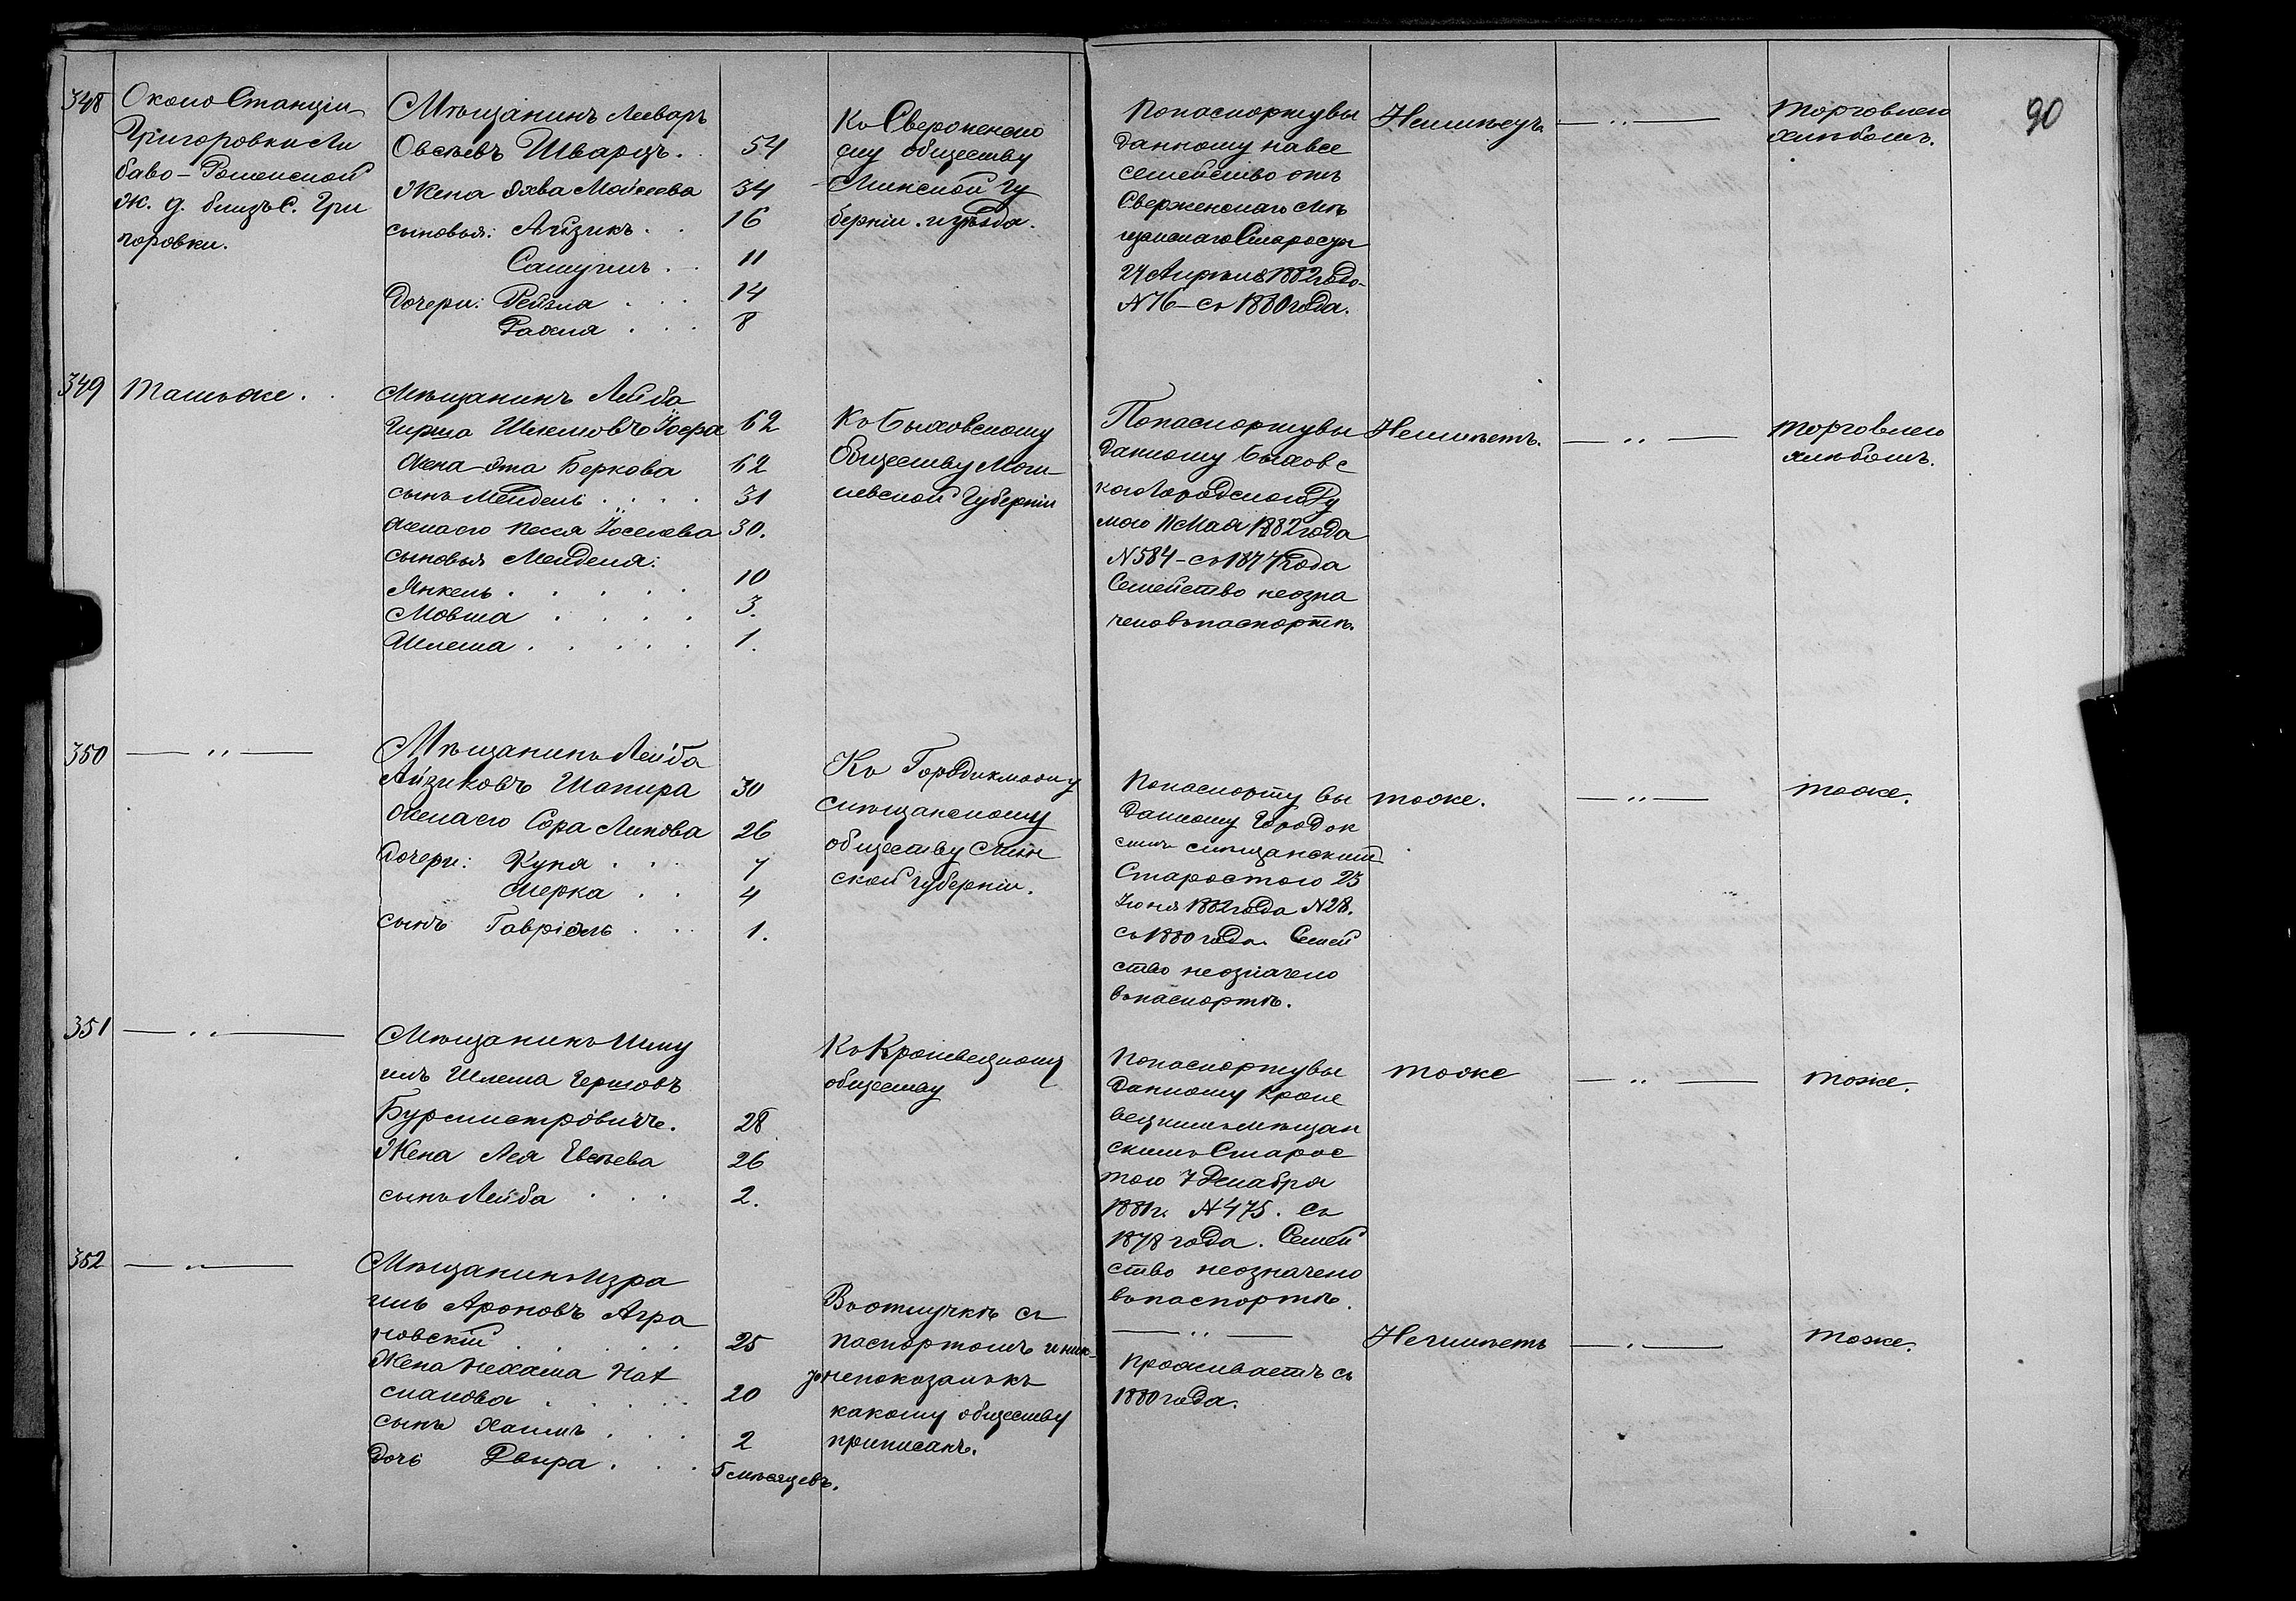 90
348
Около Станціи
Григоровки Ли
баво-Роменской
ж. д. близъ с. Гри
горовки.
Мѣщанинъ Лейзаръ
Овсѣевъ Шварцъ. 54
Жена Яхва Мойсеева 34
сыновья: Айзикъ . . 16
Самуилъ . . 11
Дочери: Рейзла . . . 14
Рахля . . . 8
Къ Сверженско
му обществу
Минской гу
берніи. и уѣзда.
По паспорту вы
данному на все
семейство отъ
Сверженскаго мѣ
щанскаго Старосты
24 Апрѣля 1882 года
N 76 - съ 1880 года.
Неимѣетъ
— „ —
торговлею
хлѣбомъ.
349
Тамъ же .
Мѣщанинъ Лейба
Гирша 62
Жена Эта Беркова 62
сынъ Мендель . . . . 31
жена его Песя Іоселева 30.
сыновья Менделя:
Янкель . . . . . 10
Мовша . . . . 3.
Шлема . . . . . 1.
Къ Быховскому
Обществу Моги
левской Губерніи
По паспорту вы
данному Быховс
кою Городскою Ду
мою 11 Мая 1882 года
N 584 - съ 1877 года
Семейство неозна
чено въ паспортѣ.
Неимѣетъ.
— „ —
торговлею
хлѣбомъ.
350
— „ —
Мѣщанинъ Лейба
Айзиковъ Шапира 30
Жена его Сора Липова 26
Дочери: Куня . . . 7
Мерка . . 4
сынъ Гавріель . . . 1.
Къ
мѣщанскому
обществу Мин
ской губерніи.
По паспорту вы
данному Городок
скимъ мѣщанскимъ
Старостою 23
Іюня 1882 года N 28.
съ 1880 года. Семей
ство неозначено
въ паспортѣ.
тоже.
— „ —
тоже.
351
— „ —
Мѣщанинъ Шму
илъ Шлема Гершовъ
Бурмистровичъ. 28
Жена Лея Евсѣева 26
сынъ Лейба . . . 2.
Къ Кролевецкому
обществу
По паспорту вы
данному Кроле
вецкимъ мѣщан
скимъ Старос
тою 7 Декабря
1881 г. N 475. Съ
1878 года. Семей
ство неозначено
въ паспортѣ.
тоже
— „ —
тоже.
352
— „ —
Мѣщанинъ Изра
иль Ароновъ Агра
новскій . . . . . 25
Жена Нехама Нот
смалова . . . . . 20
сынъ Хаимъ . . . 2
Дочь Двыра . . . 5 мѣсяцевъ.
Въ отлучкѣ съ
паспортомъ
непоказалъ къ
какому обществу
приписанъ.
— „ —
Проживаетъ съ
1880 года.
Неимѣетъ
— „ —
тоже.